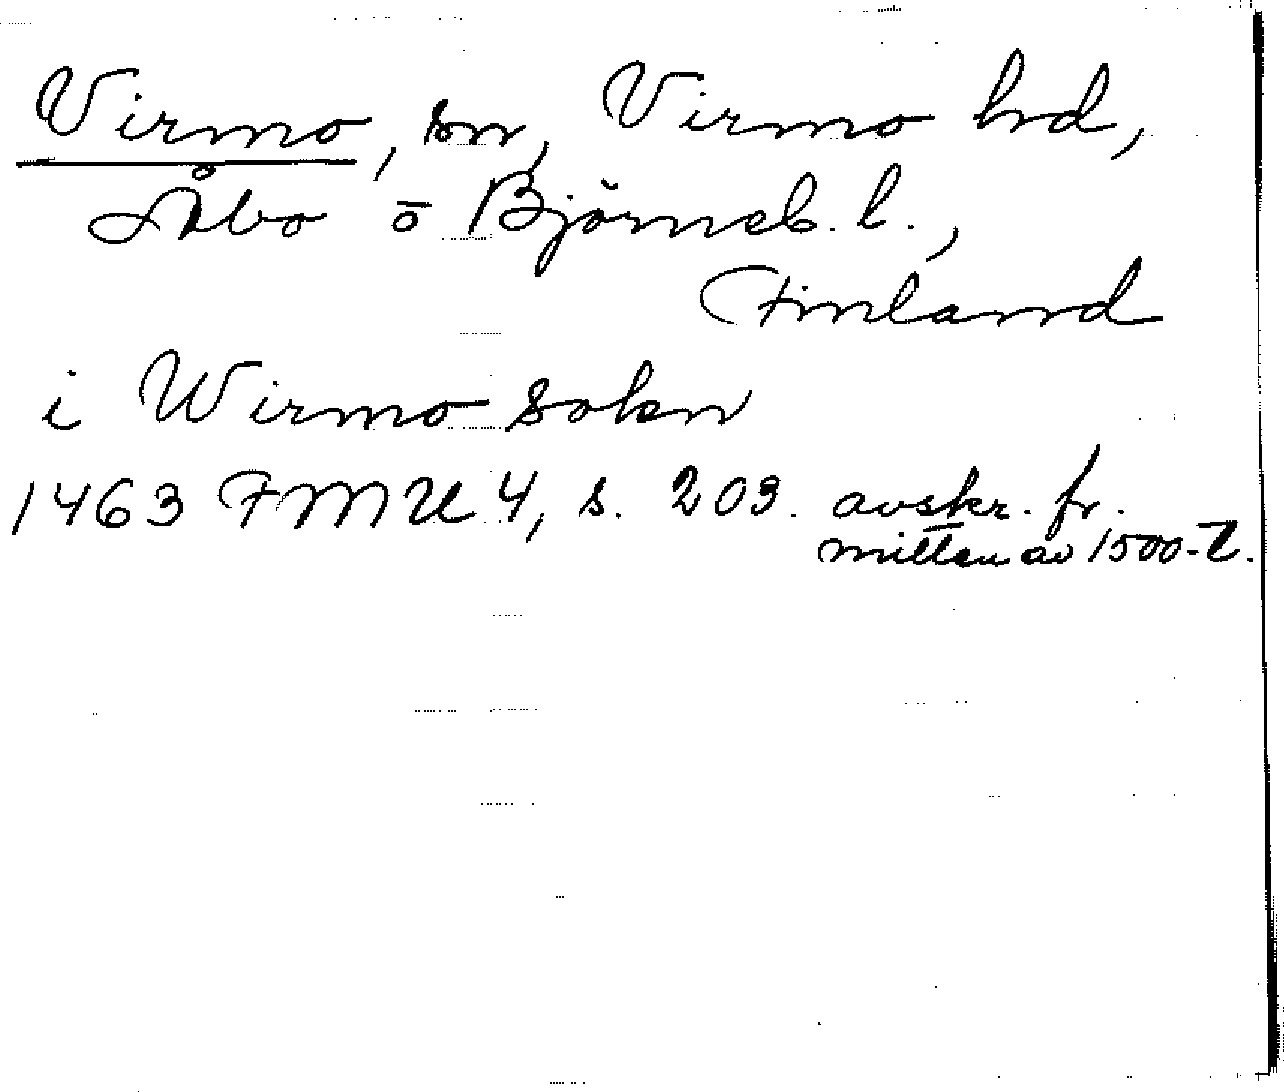 Virmo, sn, Virmo hrd,
Åbo o Björneb. l.,
Finland
i Wirmo sokn
1463 FMU 4, s. 203. avskr. fr.
mitten av 1500-t.